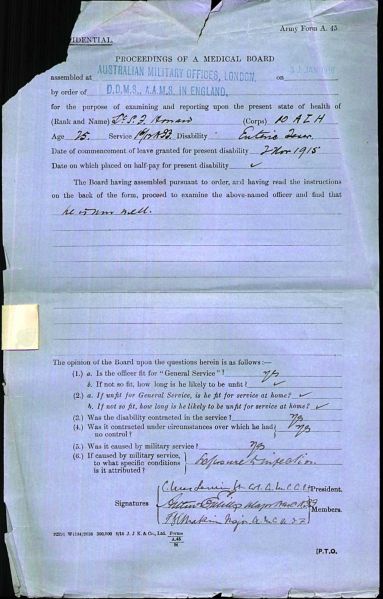 Army Form A. 45.
IDENTIAL.
PROCEEDINGS OF A MEDICAL BOARD
assembled at AUSTRALIAN MILITARY OFFICES, LONDON, on
by order of D.D.M.S., A.A.M.S. IN ENGLAND,
for the purpose of examining and reporting upon the present state of health of
(Rank and Name) (Corps) 10 A I H
Age 25. Service Disability Enteric Fever.
Date of commencement of leave granted for present disability 2 Nov 1915
Date on which placed on half-pay for present disability ✓
The Board having assembled pursuant to order, and having read the instructions
on the back of the form, proceed to examine the above-named officer and find that
he is now well.
The opinion of the Board upon the questions herein is as follows :—
(1.) a. Is the officer fit for "General Service" ? yes
b. If not so fit, how long is he likely to be unfit ? ✓
(2.) a. If unfit for General Service, is he fit for service at home ? ✓
b. If not so fit, how long is he likely to be unfit for service at home ? ✓
(3.) Was the disability contracted in the service ? yes
(4.) Was it contracted under circumstances over which he had no control ? yes
(5.) Was it caused by military service ? yes
(6.) If caused by military service, to what specific conditions is it attributed ? Exposure to infection
President.
Signatures
Members.
J. J. K. & Co., Ltd. Forms A.45
[P.T.O.